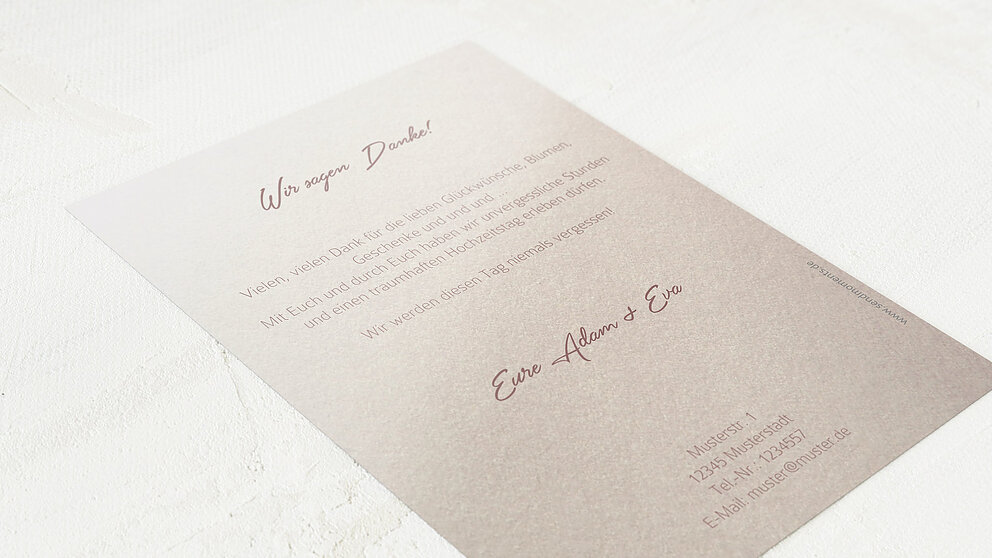 Wir sagen Danke!
Vielen, vielen Dank für die lieben Glückwünsche, Blumen,
Geschenke und und und ...
Mit Euch und durch Euch haben wir unvergessliche Stunden
und einen traumhaften Hochzeitstag erleben dürfen.
Wir werden diesen Tag niemals vergessen!
Eure Adam & Eva
Musterstr. 1
12345 Musterstadt
Tel.-Nr.: 1234557
E-Mail: muster@muster.de
www.sendmoments.de